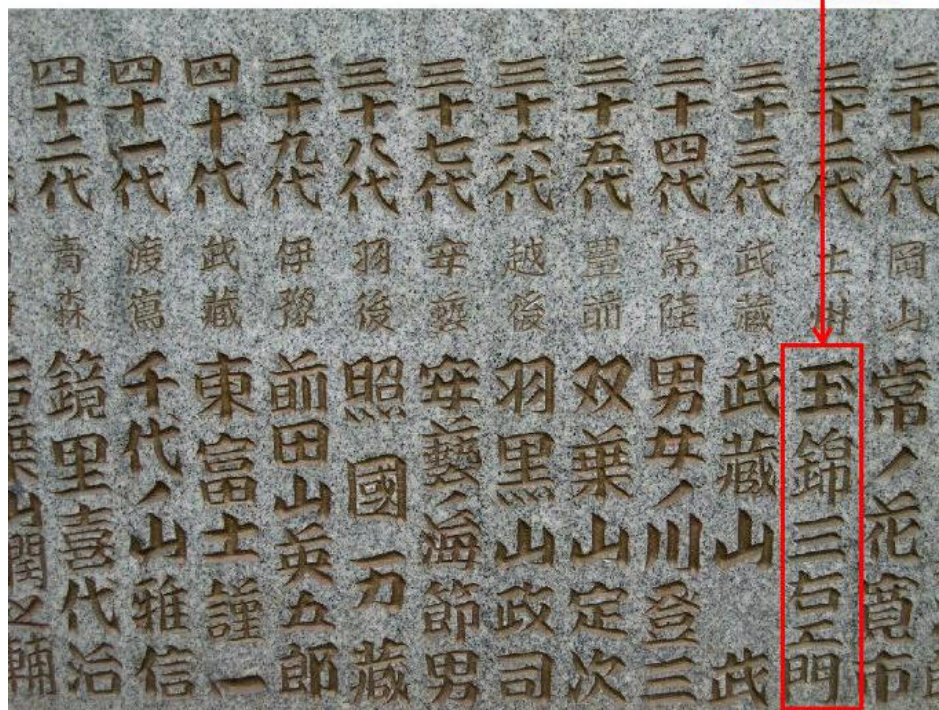 三十一代 岡山 常ノ花寛市
三十二代 土州 玉錦三右エ門
三十三代 武藏 武藏山武
三十四代 常陸 男女ノ川登三
三十五代 豊前 双葉山定次
三十六代 越後 羽黒山政司
三十七代 安藝 安藝ノ海節男
三十八代 羽後 照國万藏
三十九代 伊豫 前田山英五郎
四十代 武藏 東富士謹一
四十一代 渡嶌 千代ノ山雅信
四十二代 青森 鏡里喜代治
吉葉山潤之輔